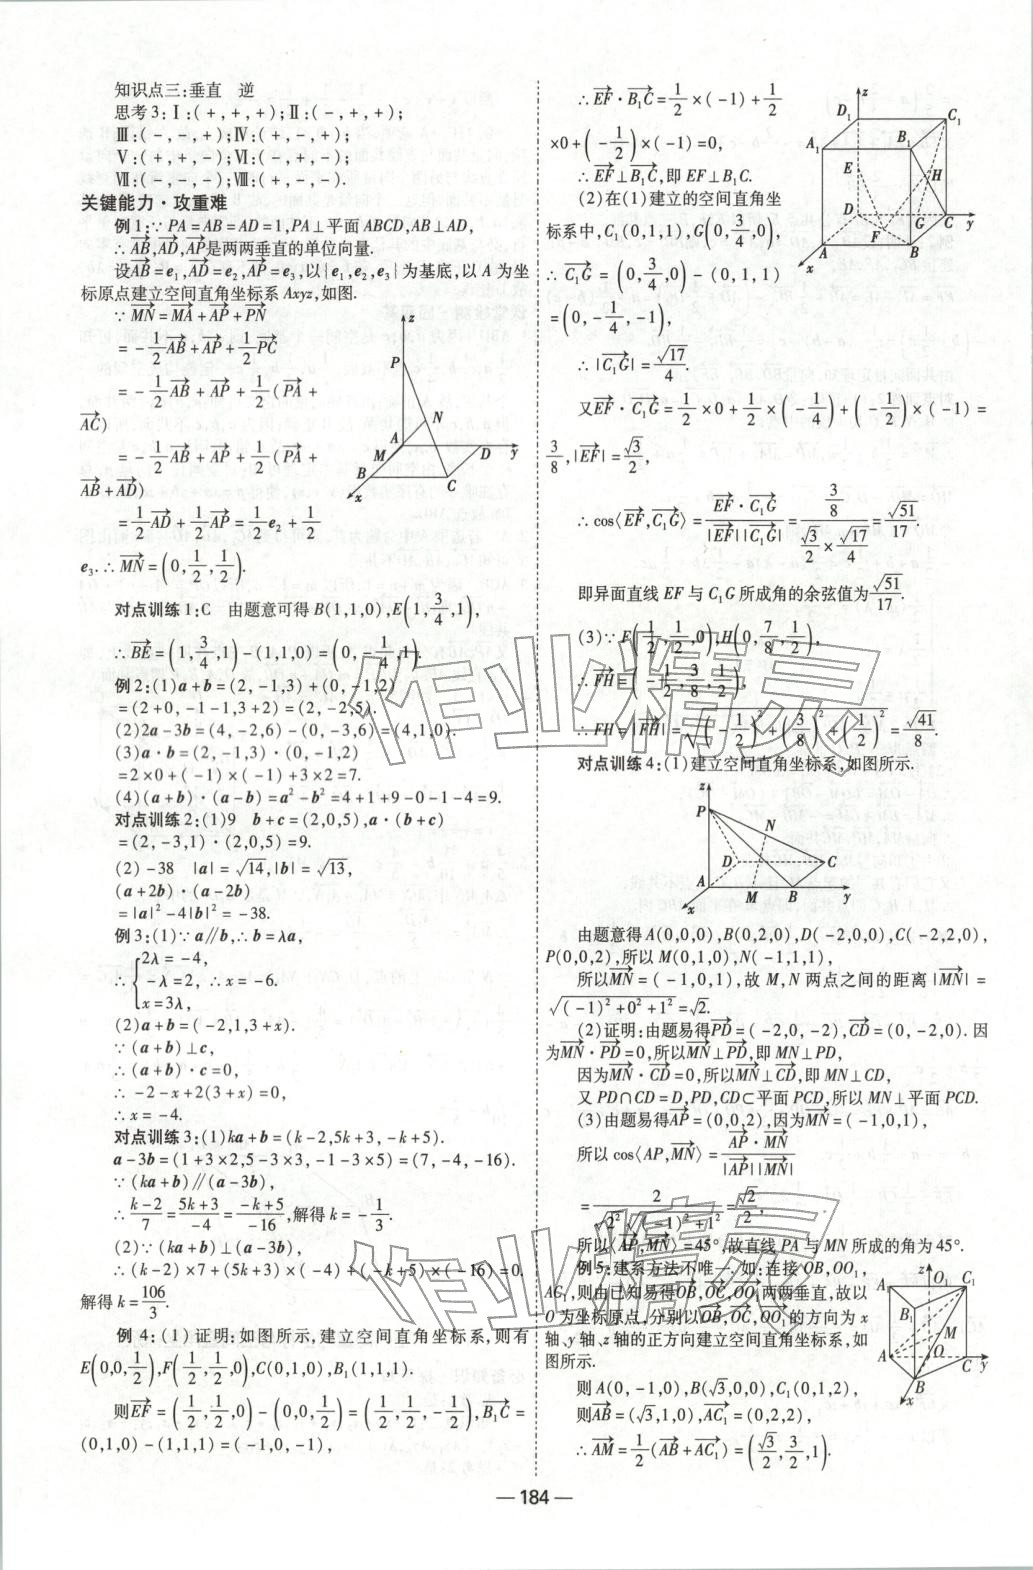 知识点三:垂直　逆
思考3:Ⅰ:(+,+,+);Ⅱ:(-,+,+);
Ⅲ:(-,-,+);Ⅳ:(+,-,+);
Ⅴ:(+,+,-);Ⅵ:(-,+,-);
Ⅶ:(-,-,-);Ⅷ:(+,-,-).
关键能力·攻重难
例1:∵PA=AB=AD=1,PA⊥平面ABCD,AB⊥AD,
∴→AB,→AD,→AP是两两垂直的单位向量.
设→AB=e₁,→AD=e₂,→AP=e₃,以{e₁,e₂,e₃}为基底,以A为坐
标原点建立空间直角坐标系Axyz,如图.
∵→MN=→MA+→AP+→PN
=-1/2→AB+→AP+1/2→PC
=-1/2→AB+→AP+1/2(→PA+
→AC)
=-1/2→AB+→AP+1/2(→PA+
→AB+→AD)
=1/2→AD+1/2→AP=1/2e₂+1/2
e₃.∴→MN=(0,1/2,1/2).
z P N A M D y B C x
对点训练1:C　由题意可得B(1,1,0),E(1,3/4,1),
∴→BE=(1,3/4,1)-(1,1,0)=(0,-1/4,1).
例2:(1)a+b=(2,-1,3)+(0,-1,2)
=(2+0,-1-1,3+2)=(2,-2,5).
(2)2a-3b=(4,-2,6)-(0,-3,6)=(4,1,0).
(3)a·b=(2,-1,3)·(0,-1,2)
=2×0+(-1)×(-1)+3×2=7.
(4)(a+b)·(a-b)=a²-b²=4+1+9-0-1-4=9.
对点训练2:(1)9　b+c=(2,0,5),a·(b+c)
=(2,-3,1)·(2,0,5)=9.
(2)-38　|a|=√14,|b|=√13,
(a+2b)·(a-2b)
=|a|²-4|b|²=-38.
例3:(1)∵a∥b,∴b=λa,
∴{2λ=-4,
-λ=2, ∴x=-6.
x=3λ,
(2)a+b=(-2,1,3+x).
∵(a+b)⊥c,
∴(a+b)·c=0,
∴-2-x+2(3+x)=0,
∴x=-4.
对点训练3:(1)ka+b=(k-2,5k+3,-k+5).
a-3b=(1+3×2,5-3×3,-1-3×5)=(7,-4,-16).
∵(ka+b)∥(a-3b),
∴(k-2)/7=(5k+3)/(-4)=(-k+5)/(-16),解得k=-1/3.
(2)∵(ka+b)⊥(a-3b),
∴(k-2)×7+(5k+3)×(-4)+(-k+5)×(-16)=0.
解得k=106/3.
例4:(1)证明:如图所示,建立空间直角坐标系,则有
E(0,0,1/2),F(1/2,1/2,0),C(0,1,0),B₁(1,1,1).
则→EF=(1/2,1/2,0)-(0,0,1/2)=(1/2,1/2,-1/2),→B₁C=
(0,1,0)-(1,1,1)=(-1,0,-1),
∴→EF·→B₁C=1/2×(-1)+1/2
×0+(-1/2)×(-1)=0,
∴→EF⊥→B₁C,即EF⊥B₁C.
(2)在(1)建立的空间直角坐
标系中,C₁(0,1,1),G(0,3/4,0),
∴→C₁G=(0,3/4,0)-(0,1,1)
=(0,-1/4,-1),
∴|→C₁G|=√17/4.
z D₁ C₁ A₁ B₁ E H D F G C y A B x
又→EF·→C₁G=1/2×0+1/2×(-1/4)+(-1/2)×(-1)=
3/8,|→EF|=√3/2,
∴cos⟨→EF,→C₁G⟩=(→EF·→C₁G)/(|→EF||→C₁G|)=(3/8)/(√3/2×√17/4)=√51/17.
即异面直线EF与C₁G所成角的余弦值为√51/17.
(3)∵F(1/2,1/2,0),H(0,7/8,1/2),
∴→FH=(-1/2,3/8,1/2),
∴FH=|→FH|=√((-1/2)²+(3/8)²+(1/2)²)=√41/8.
对点训练4:(1)建立空间直角坐标系,如图所示.
z P N D C A M B y x
由题意得A(0,0,0),B(0,2,0),D(-2,0,0),C(-2,2,0),
P(0,0,2),所以M(0,1,0),N(-1,1,1),
所以→MN=(-1,0,1),故M,N两点之间的距离|→MN|=
√((-1)²+0²+1²)=√2.
(2)证明:由题易得→PD=(-2,0,-2),→CD=(0,-2,0).因
为→MN·→PD=0,所以→MN⊥→PD,即MN⊥PD,
因为→MN·→CD=0,所以→MN⊥→CD,即MN⊥CD,
又PD∩CD=D,PD,CD⊂平面PCD,所以MN⊥平面PCD.
(3)由题易得→AP=(0,0,2),因为→MN=(-1,0,1),
所以cos⟨AP,→MN⟩=(→AP·→MN)/(|→AP||→MN|)
=2/(√2²√((-1)²+1²))=√2/2,
所以⟨→AP,→MN⟩=45°,故直线PA与MN所成的角为45°.
例5:建系方法不唯一.如:连接OB,OO₁,
AC₁,则由已知易得→OB,→OC,→OO₁两两垂直,故以
O为坐标原点,分别以→OB,→OC,→OO₁的方向为x
轴、y轴、z轴的正方向建立空间直角坐标系,如
图所示.
z O₁ C₁ A₁ B₁ M A O C y B x
则A(0,-1,0),B(√3,0,0),C₁(0,1,2),
则→AB=(√3,1,0),→AC₁=(0,2,2),
∴→AM=1/2(→AB+→AC₁)=(√3/2,3/2,1).
作业精灵
作业精灵
— 184 —